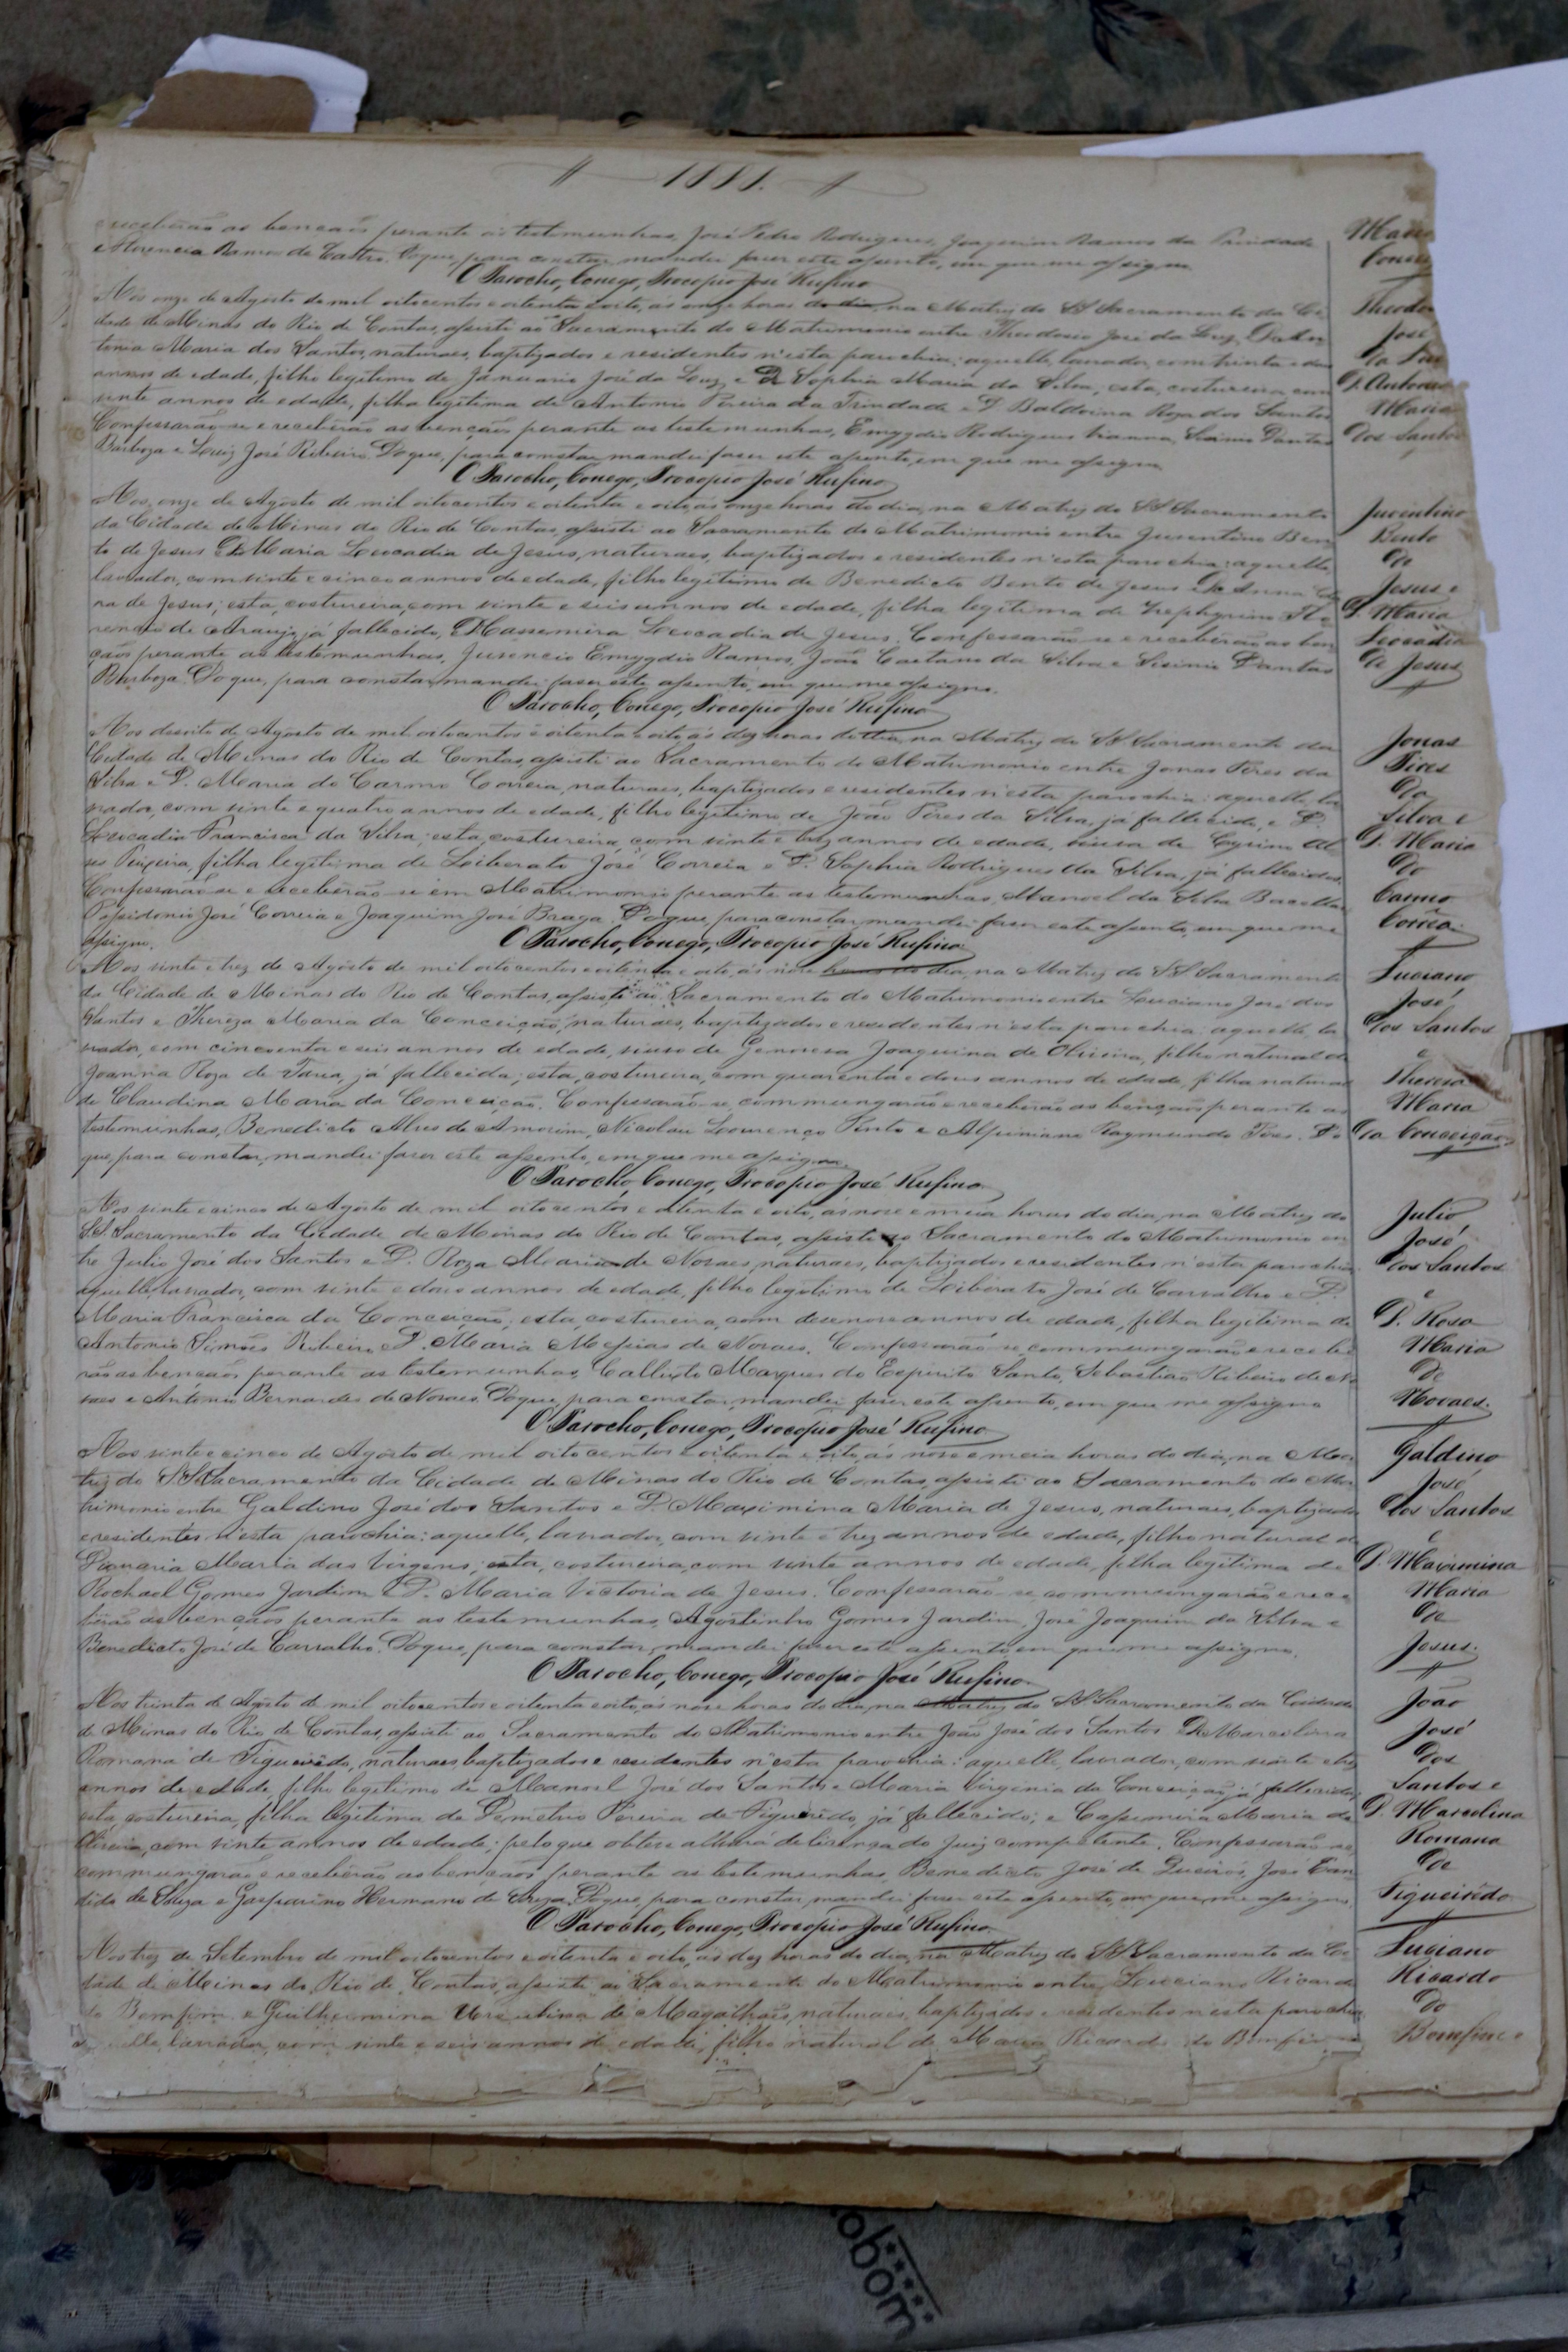 1888.
receberão as bençaõs perante as testemunhas, José Pedro Rodrigues, Joaquim Ramos da Trindade
e Florencia Ramos de Castro. Do que, para constar, mandei faser este assento, em que me assigno.
O Parocho, Conego, Procopio José Rufino
Aos onze de Agosto de mil oitocentos e oitenta e oito, ás onze horas do dia, na Matriz do SS Sacramento da Ci
dade de Minas do Rio de Contas, assisti ao Sacramento do Matrimonio entre Theodosio José da Luz e D. An
tonia Maria dos Santos, naturaes, baptizados e residentes n'esta parochia: aquelle, lavrador, com trinta e dous
annos de edade, filho legitimo de Januario José da Luz e D. Sophia Maria da Silva; esta, costureira, com
vinte annos de edade, filha legitima de Antonio Pereira da Trindade e D. Baldoina Roza dos Santos
Confessarão-se e receberão as bençaõs perante as testemunhas, Emygdio Rodrigues Vianna, Sisinio Dantas
Barboza e Luiz José Ribeiro. Do que, para constar, mandei faser este assento, em que me assigno
O Parocho, Conego, Procopio José Rufino
Theodo
José
da Luz
D. Antonia
Maria
dos Santos
Aos, onze de Agosto de mil oitocentos e oitenta e oito, ás onze horas do dia, na Matriz do SS Sacramento
da Cidade de Minas do Rio de Contas, assisti ao Sacramento do Matrimonio entre Juventino Ben
to de Jesus e D. Maria Leocadia de Jesus, naturaes, baptizados e residentes n'esta parochia: aquelle
lavrador, com vinte e cinco annos de edade, filho legitimo de Benedicto Bento de Jesus e D. Anna
ra de Jesus; esta, costureira, com vinte e seis annos de edade, filha legitima de Zephyrino Flo
rencio de Araujo, já fallecido, e Massemira Leocadia de Jesus. Confessarão-se e receberão as ben
çaõs perante as testemunhas, Juvencio Emygdio Ramos, João Caetano da Silva e Sisinio Dantas
Barboza. Do que, para constar, mandei faser este assento, em que me assigno.
O Parocho, Conego, Procopio José Rufino
Juventino
Bento
de
Jesus e
D. Maria
Leocadia
de Jesus
Aos desoito de Agosto de mil oitocentos e oitenta e oito, ás dez horas do dia, na Matriz do SS Sacramento da
Cidade de Minas do Rio de Contas, assisti ao Sacramento do Matrimonio entre Jonas Pires da
Silva e D. Maria do Carmo Correia, naturaes, baptizados e residentes n'esta parochia: aquelle, la
vrador, com vinte e quatro annos de edade, filho legitimo de João Pires da Silva, já fallecido, e D.
Leocadia Francisca da Silva; esta, costureira, com vinte e trez annos de edade, viuva de
Teixeira, filha legitima de Liberato José Correia e D. Sophia Rodrigues da Silva, já fallecidos.
Confessarão-se e receberão-se em Matrimonio perante as testemunhas, Manoel da Silva Bacellar
Possidonio José Correia e Joaquim José Braga. Do que, para constar, mandei faser este assento, em que me
assigno.
O Parocho, Conego, Procopio José Rufino
Jonas
Pires
da
Silva e
D. Maria
do
Carmo
Corrêa.
Aos vinte e trez de Agosto de mil oitocentos e oitenta e oito, ás nove horas do dia, na Matriz do SS Sacramento
da Cidade de Minas do Rio de Contas, assisti ao Sacramento do Matrimonio entre Luciano José dos
Santos e Thereza Maria da Conceição, naturaes, baptizados e residentes n'esta parochia: aquelle, la
vrador, com cincoenta e seis annos de edade, viuvo de Generosa Joaquina de Oliveira, filho natural de
Joanna Roza de Faria, já fallecida; esta, costureira, com quarenta e dous annos de edade, filha natural
de Claudina Maria da Conceição. Confessarão-se, commungarão e receberão as bençaõs perante as
testemunhas, Benedicto Alves de Amorim, Nicolau Lourenço Pinto e Alpiniano Raymundo Pires. Do
que, para constar, mandei faser este assento, em que me assigno.
O Parocho, Conego, Procopio José Rufino
Luciano
José
dos Santos
e
Theresa
Maria
da Conceição.
Aos vinte e cinco de Agosto de mil oitocentos e oitenta e oito, ás nove e meia horas do dia, na Matriz do
S.S. Sacramento da Cidade de Minas do Rio de Contas, assisti ao Sacramento do Matrimonio en
tre Julio José dos Santos e D. Roza Maria de Novaes, naturaes, baptizados e residentes n'esta parochia
aquelle, lavrador, com vinte e dous annos de edade, filho legitimo de Liberato José de Carvalho e D.
Maria Francisca da Conceição; esta, costureira, com desenove annos de edade, filha legitima de
Antonio Simões Ribeiro e D. Maria Messias de Novaes. Confessarão-se, commungarão e recebe
rão as bençaõs perante as testemunhas, Callixto Marques do Espirito Santo, Sebastião Ribeiro de No
vaes e Antonio Bernardes de Novaes. Do que, para constar, mandei faser este assento, em que me assigno
O Parocho, Conego, Procopio José Rufino
Julio
José
dos Santos
e
D. Rosa
Maria
de
Novaes.
Aos vinte e cinco de Agosto de mil oitocentos e oitenta e oito, ás nove e meia horas do dia, na Ma
triz do SS Sacramento da Cidade de Minas do Rio de Contas, assisti ao Sacramento do Ma
trimonio entre Galdino José dos Santos e D. Maximina Maria de Jesus, naturaes, baptizados
e residentes n'esta parochia: aquelle, lavrador, com vinte e trez annos de edade, filho natural de
Maria das Virgens; esta, costureira, com vinte annos de edade, filha legitima de
Rachael Gomes Jardim e D. Maria Victoria de Jesus. Confessarão-se, commungarão e rece
berão as bençaõs perante as testemunhas, Agostinho Gomes Jardim, José Joaquim da Silva e
Benedicto José de Carvalho. Do que, para constar, mandei faser este assento, em que me assigno.
O Parocho, Conego, Procopio José Rufino
Galdino
José
dos Santos
e
D. Maximina
Maria
de
Jesus.
Aos trinta de Agosto de mil oitocentos e oitenta e oito, ás nove horas do dia, na Matriz do SS Sacramento da Cidade
de Minas do Rio de Contas, assisti ao Sacramento do Matrimonio entre João José dos Santos e D. Marcolina
Romana de Figueirêdo, naturaes, baptizados e residentes n'esta parochia: aquelle, lavrador, com vinte e trez
annos de edade, filho legitimo de Manoel José dos Santos e Maria Virginia da Conceição, já fallecidos;
esta, costureira, filha legitima de Demetrio Pereira de Figueirêdo, já fallecido; e Cassemira Maria de
Oliveira, com vinte annos de edade; pelo que obteve alvará de licença do Juiz competente. Confessarão-se,
commungarão e receberão as bençaõs perante as testemunhas, Benedicto José de Queirós, José Can
dido de Souza e Gasparino Hermano de Souza. Do que, para constar, mandei faser este assento, em que me assigno.
O Parocho, Conego, Procopio José Rufino
João
José
dos
Santos e
D. Marcolina
Romana
de
Figueirêdo
Aos trez de Setembro de mil oitocentos e oitenta e oito, ás dez horas do dia, na Matriz do SS Sacramento da Ci
dade de Minas do Rio de Contas, assisti ao Sacramento do Matrimonio entre Luciano Ricardo
do Bomfim e Guilhermina Urculina de Magalhães, naturaes, baptizados e residentes n'esta parochia
aquelle, lavrador, com vinte e seis annos de edade, filho natural de Maria Ricarda do Bomfim
Luciano
Ricardo
do
Bomfim e